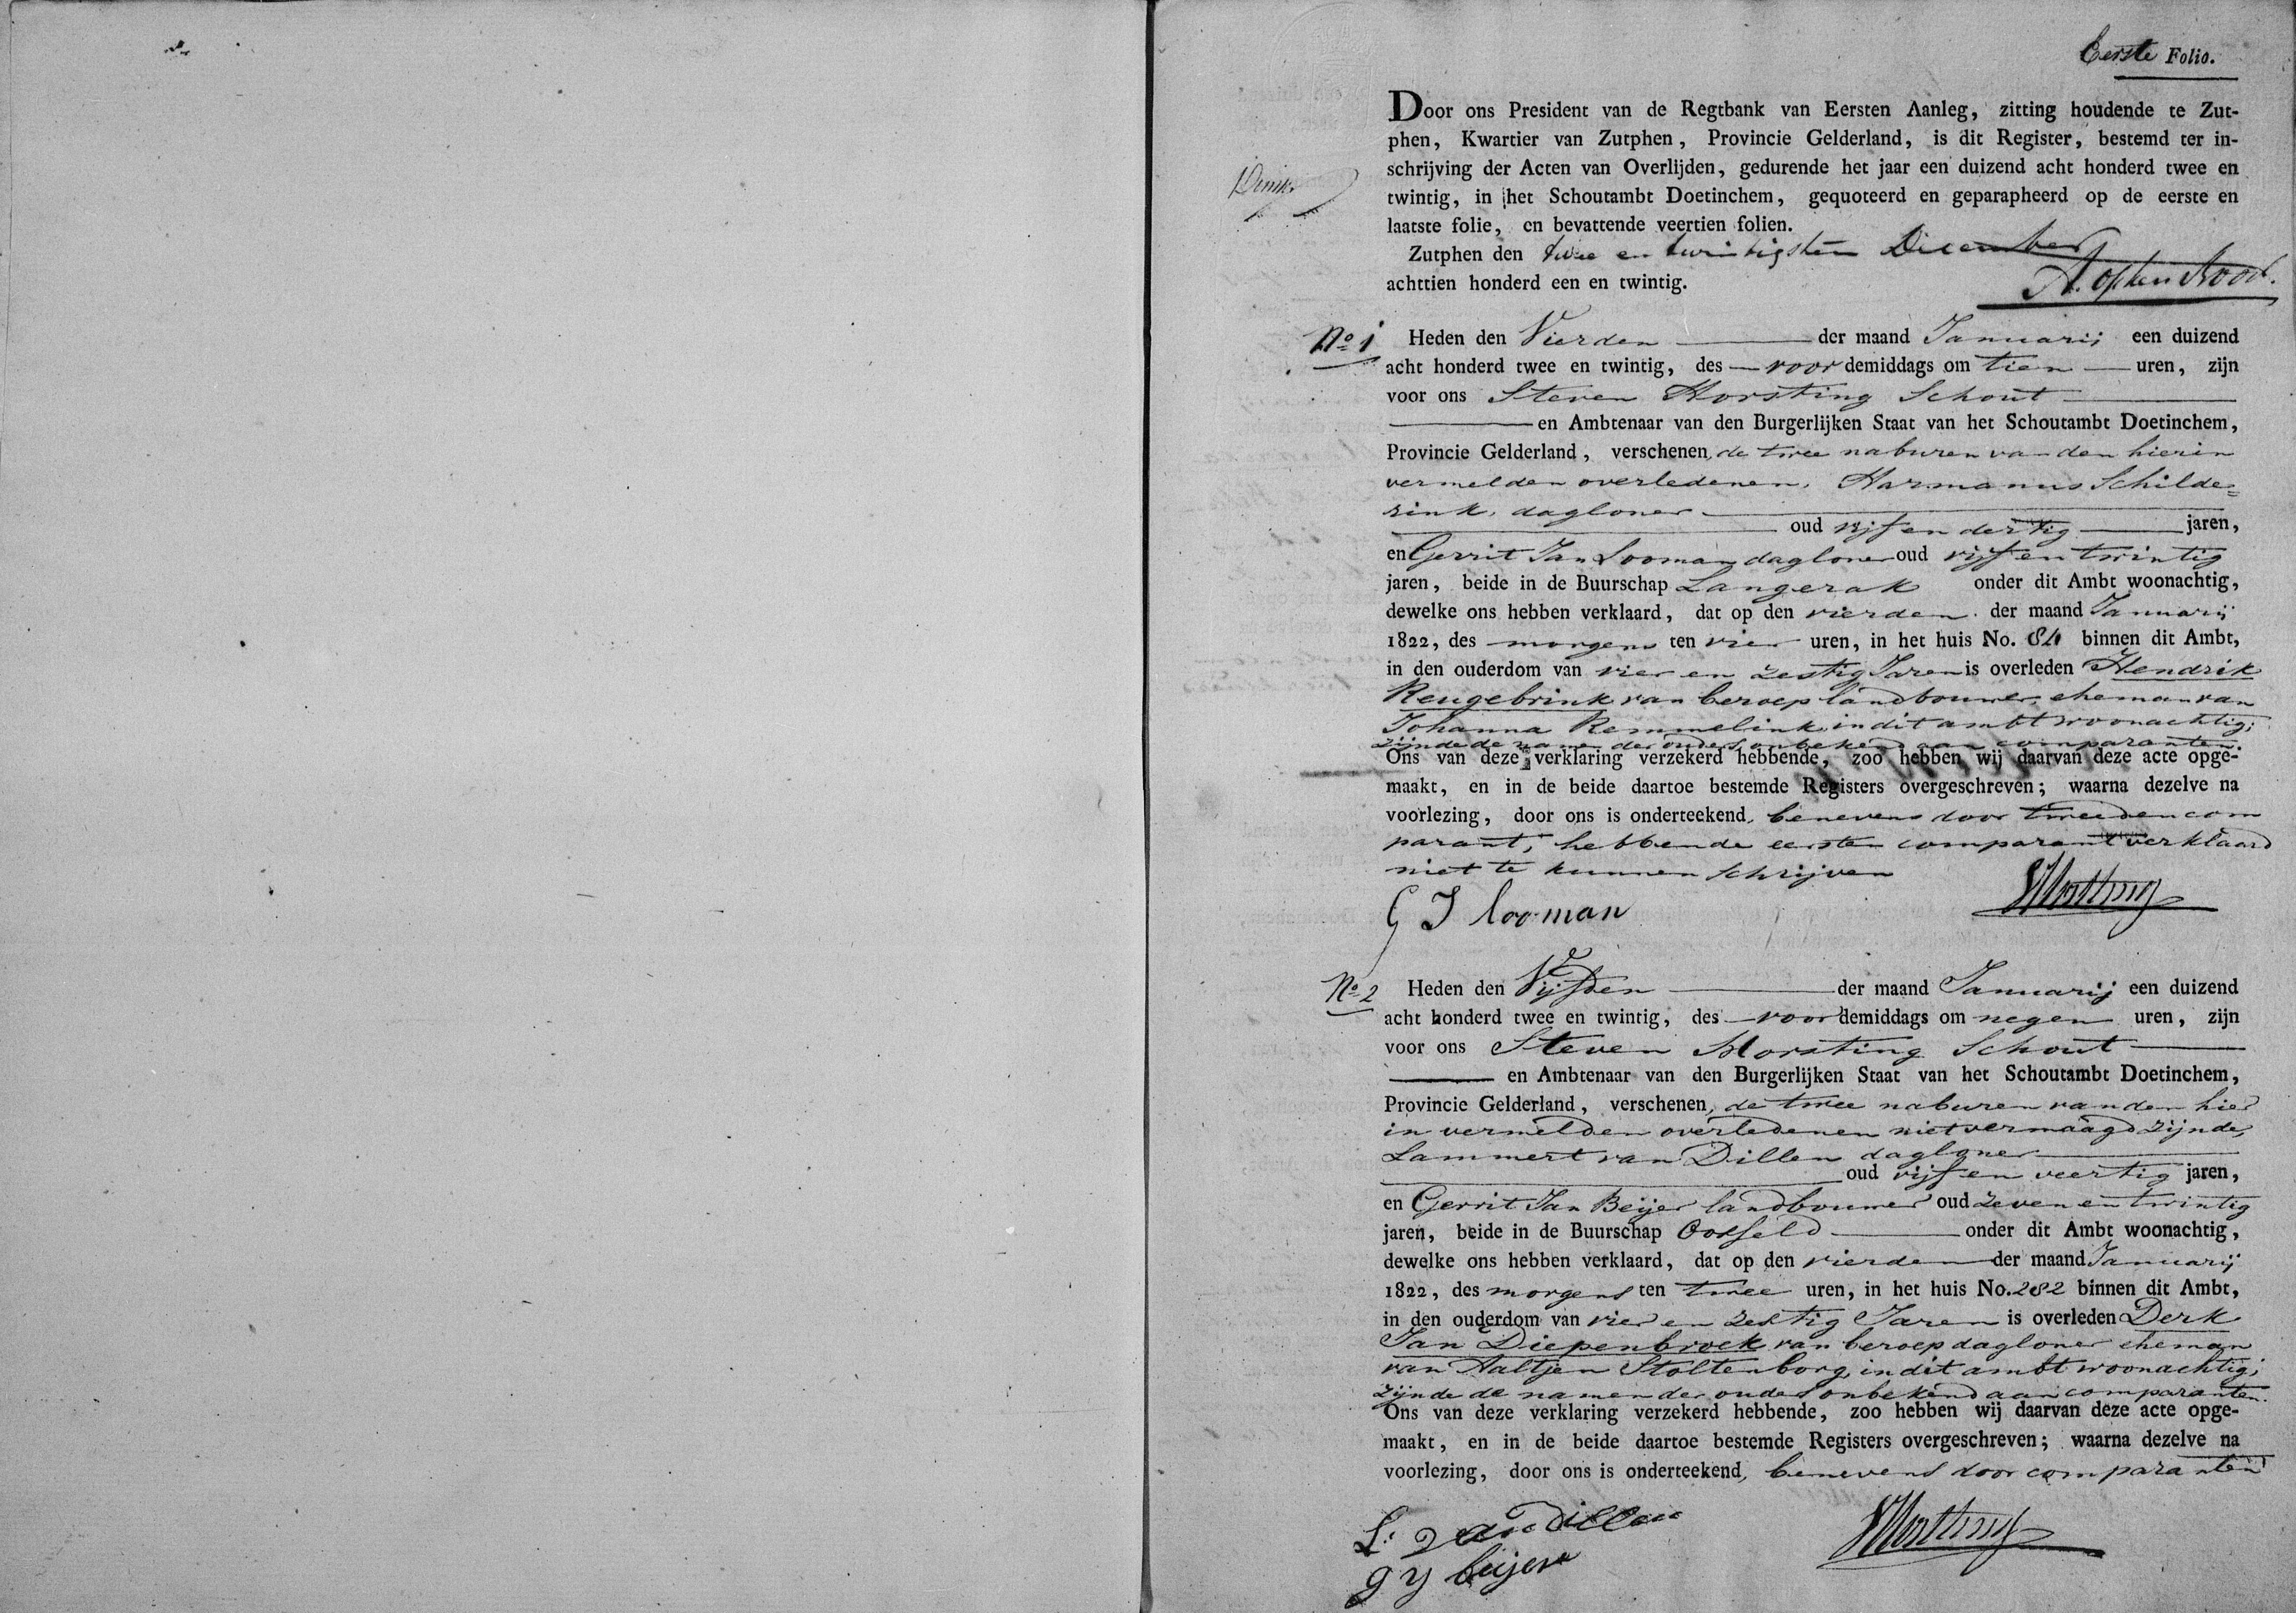 Eerste Folio.
Door ons President van de Regtbank van Eersten Aanleg, zitting houdende te Zut-
phen, Kwartier van Zutphen, Provincie Gelderland, is dit Register, bestemd ter in-
schrijving der Acten van Overlijden, gedurende het jaar een duizend acht honderd twee en
twintig, in het Schoutambt Doetinchem, gequoteerd en geparapheerd op de eerste en
laatste folie, en bevattende veertien folien.
Zutphen den twee en twintigsten December
achttien honderd een en twintig.
A. op ten Noort.
No 1 Heden den Vierden der maand Januarij een duizend
acht honderd twee en twintig, des voor demiddags om tien uren, zijn
voor ons Steven Horsting Schout
en Ambtenaar van den Burgerlijken Staat van het Schoutambt Doetinchem,
Provincie Gelderland, verschenen, de twee naburen van den hierin
vermelden overledenen, Harmanus Schilde=
rink, dagloner
oud vijf en dertig jaren,
en Gerrit Jan Looman dagloner oud vijf en twintig
jaren, beide in de Buurschap Langerak onder dit Ambt woonachtig,
dewelke ons hebben verklaard, dat op den vierden der maand Januarij
1822, des morgens ten vier uren, in het huis No. 84 binnen dit Ambt,
in den ouderdom van vier en zestig Jaren is overleden Hendrik
Reugebrink van beroep landbouwer, eheman van
Johanna Remmelink, in dit ambt woonachtig;
zijnde de namen der ouders onbekend aan comparanten.
Ons van deze verklaring verzekerd hebbende, zoo hebben wij daarvan deze acte opge-
maakt, en in de beide daartoe bestemde Registers overgeschreven; waarna dezelve na
voorlezing, door ons is onderteekend, benevens door tweeden com
parant, hebbende eersten comparant verklaard
niet te kunnen schrijven
G J looman SHorsting
No 2 Heden den Vijfden der maand Januarij een duizend
acht honderd twee en twintig, des voor demiddags om negen uren, zijn
voor ons Steven Horsting Schout
en Ambtenaar van den Burgerlijken Staat van het Schoutambt Doetinchem,
Provincie Gelderland, verschenen, de twee naburen van den hier
in vermelden overledenen niet vermaagd zijnde,
Lammert van Dillen dagloner
oud vijf en veertig jaren,
en Gerrit Jan Beijer landbouwer oud zeven en twintig
jaren, beide in de Buurschap Oosseld onder dit Ambt woonachtig,
dewelke ons hebben verklaard, dat op den vierden der maand Januarij
1822, des morgens ten twee uren, in het huis No. 282 binnen dit Ambt,
in den ouderdom van vier en zestig Jaren is overleden Derk
Jan Diepenbroek van beroep dagloner eheman
van Aaltjen Stoltenborg, in dit ambt woonachtig;
zijnde de namen der ouders onbekend aan comparanten.
Ons van deze verklaring verzekerd hebbende, zoo hebben wij daarvan deze acte opge-
maakt, en in de beide daartoe bestemde Registers overgeschreven; waarna dezelve na
voorlezing, door ons is onderteekend, benevens door comparanten
L: van dillen SHorsting
g y beijer